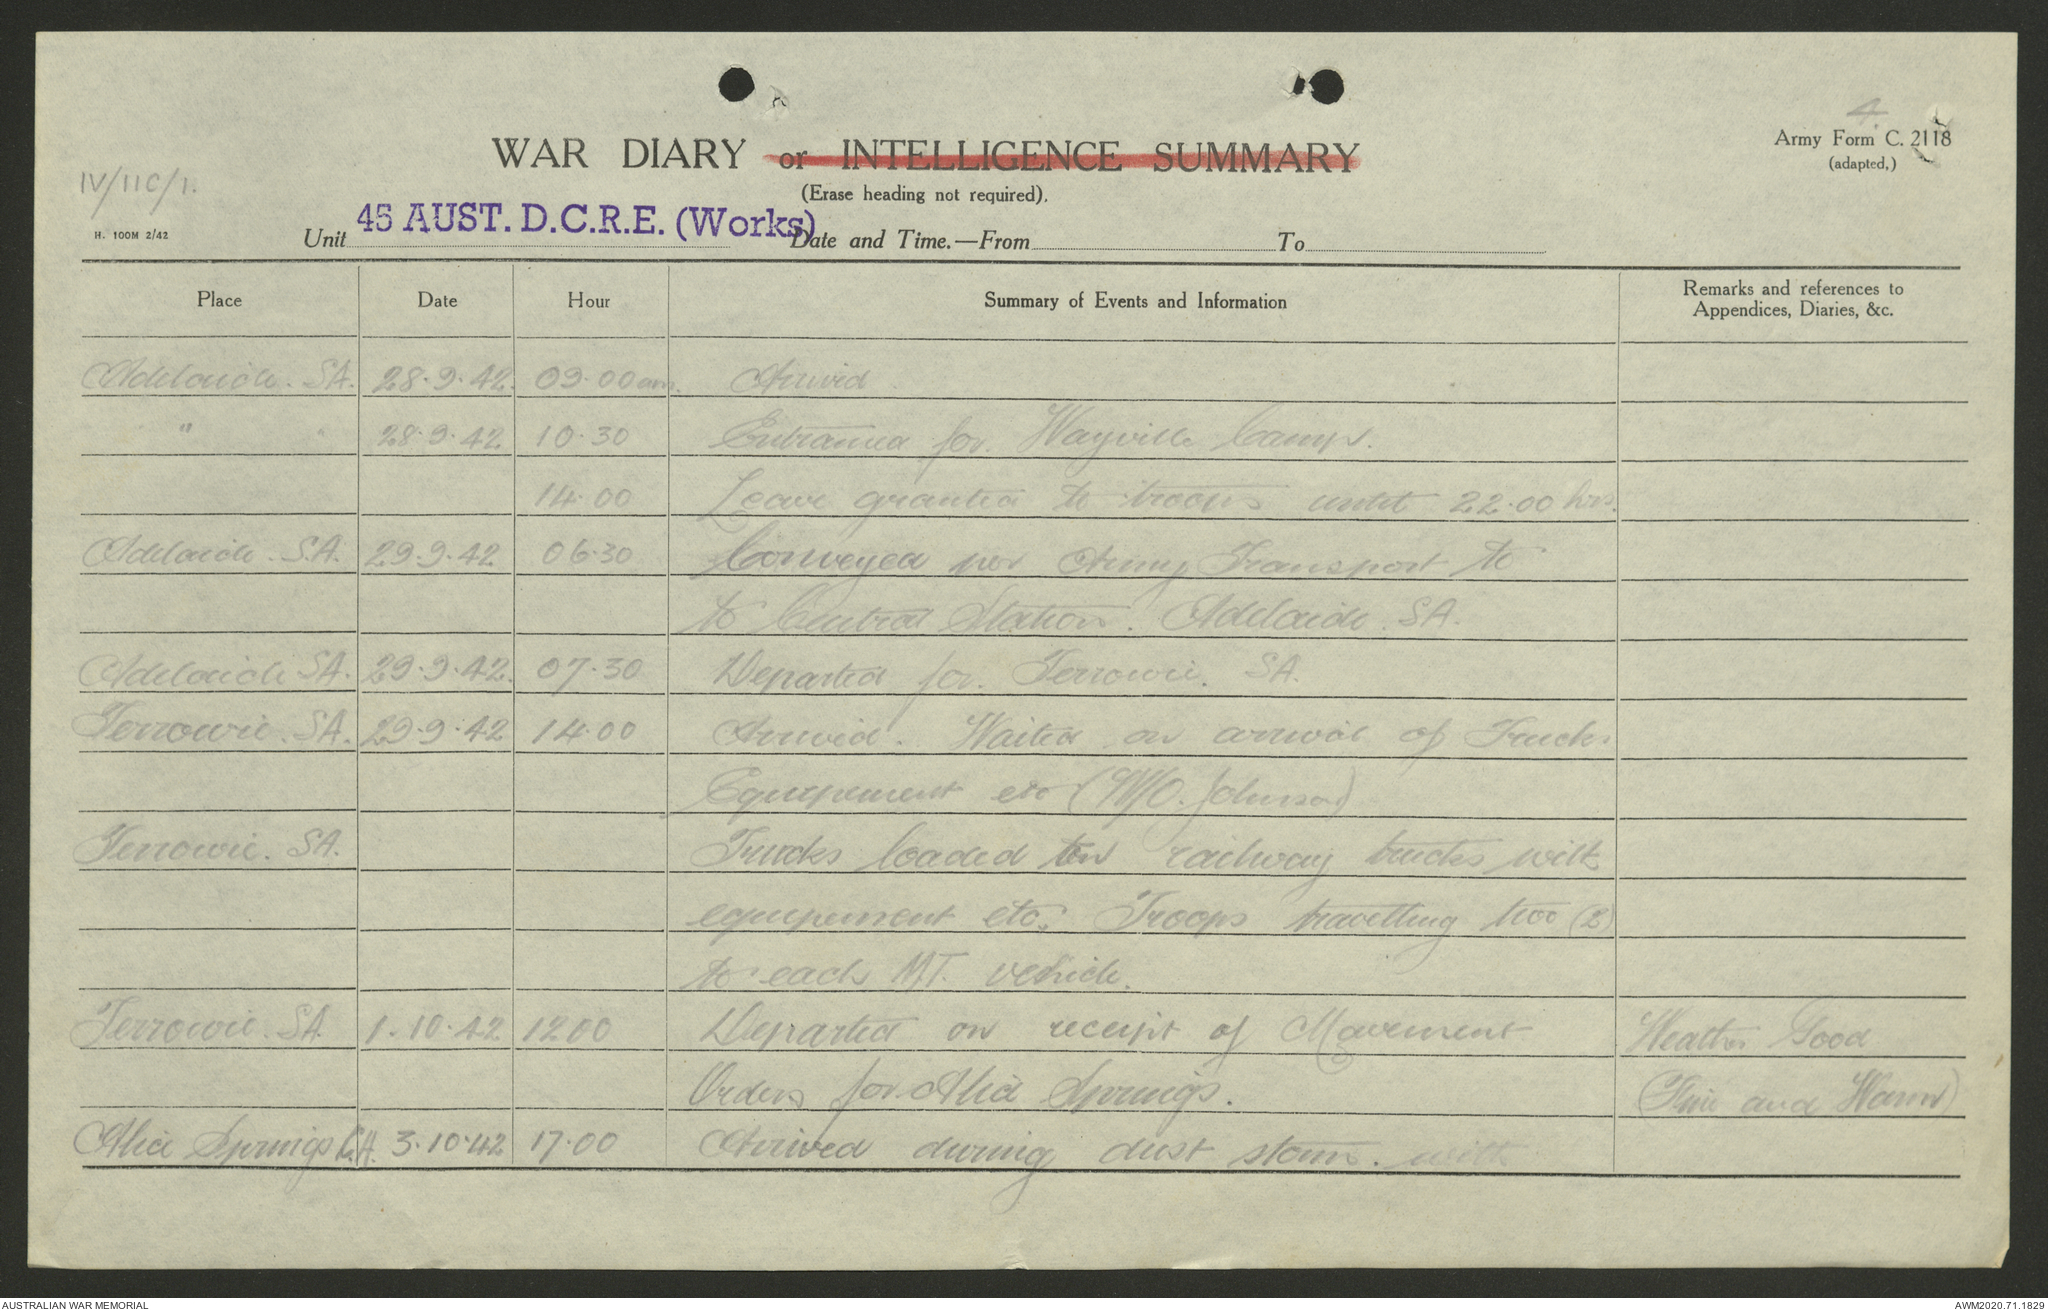 4.
WAR DIARY or INTELLIGENCE SUMMARY
Army Form C. 2118
(adapted,)
(Erase heading not required).
IV/11C/1.
H. 100M 2/42
Unit 45 AUST. D.C.R.E. (Works) Date and Time.—From To
Place Date Hour Summary of Events and Information Remarks and references to
Appendices, Diaries, &c.
Adelaide. SA. 28.9.42. 09.00am. Arrived
" " 28.9.42 10.30 Entrained for Wayville Camp.
14.00 Leave granted to troops until 22.00 hrs.
Adelaide. S.A. 29.9.42 06.30 Conveyed per Army Transport to
to Central Station. Adelaide. SA.
Adelaide SA. 29.9.42. 07.30 Departed for Terrowie. SA.
Terrowie. SA. 29.9.42 14.00 Arrived. Waited on arrival of Trucks
Equipement etc (W/O. Johnson)
Terrowie. SA. Trucks loaded on railway trucks with
equipement etc. Troops travelling two (2)
to each MT. vehicle.
Terrowie. SA 1.10.42 1200 Departed on receipt of Movement Weather Good
Orders for Alice Springs. (Fine and Warm)
Alice Springs C.A. 3.10.42 17.00 Arrived during dust storm. with
AUSTRALIAN WAR MEMORIAL
AWM2020.71.1829